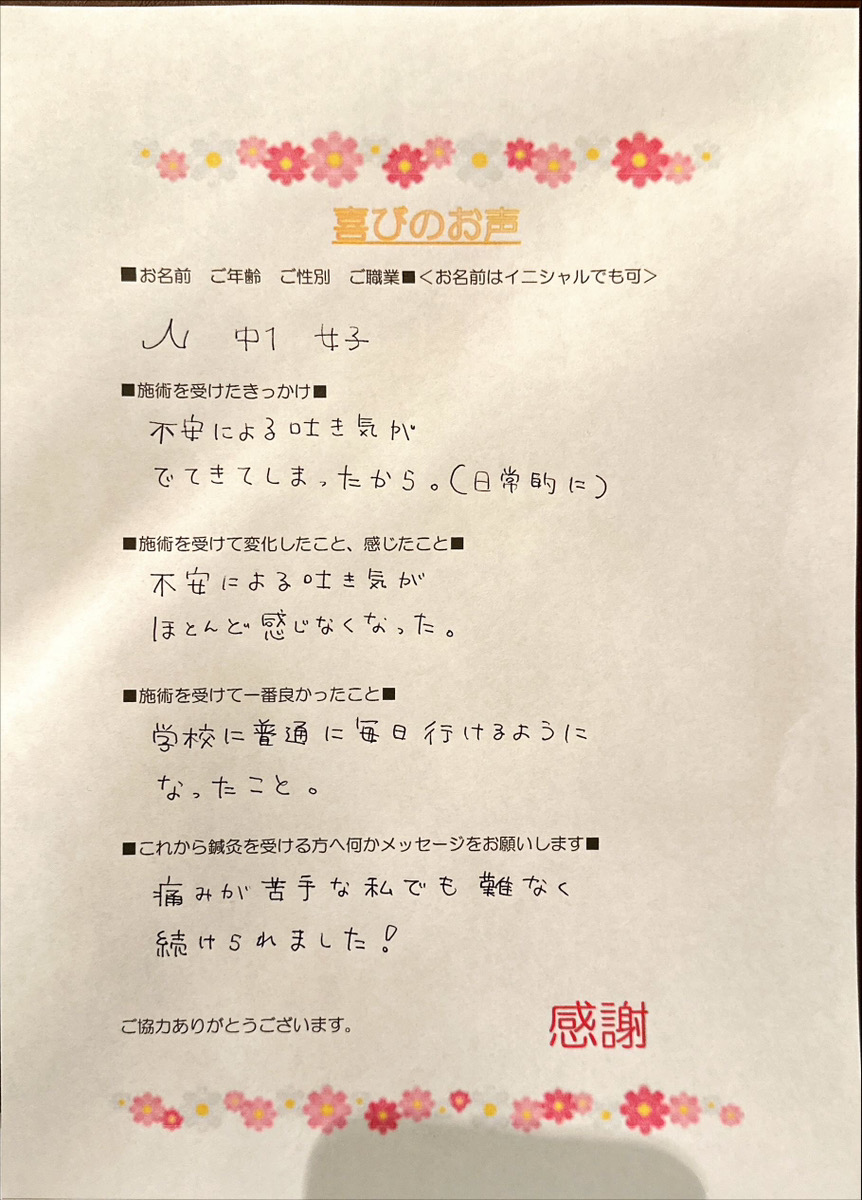 喜びのお声
■お名前　ご年齢　ご性別　ご職業■＜お名前はイニシャルでも可＞
N 中1 女子
■施術を受けたきっかけ■
不安による吐き気が
でてきてしまったから。(日常的に)
■施術を受けて変化したこと、感じたこと■
不安による吐き気が
ほとんど感じなくなった。
■施術を受けて一番良かったこと■
学校に普通に毎日行けるように
なったこと。
■これから鍼灸を受ける方へ何かメッセージをお願いします■
痛みが苦手な私でも難なく
続けられました!
ご協力ありがとうございます。
感謝